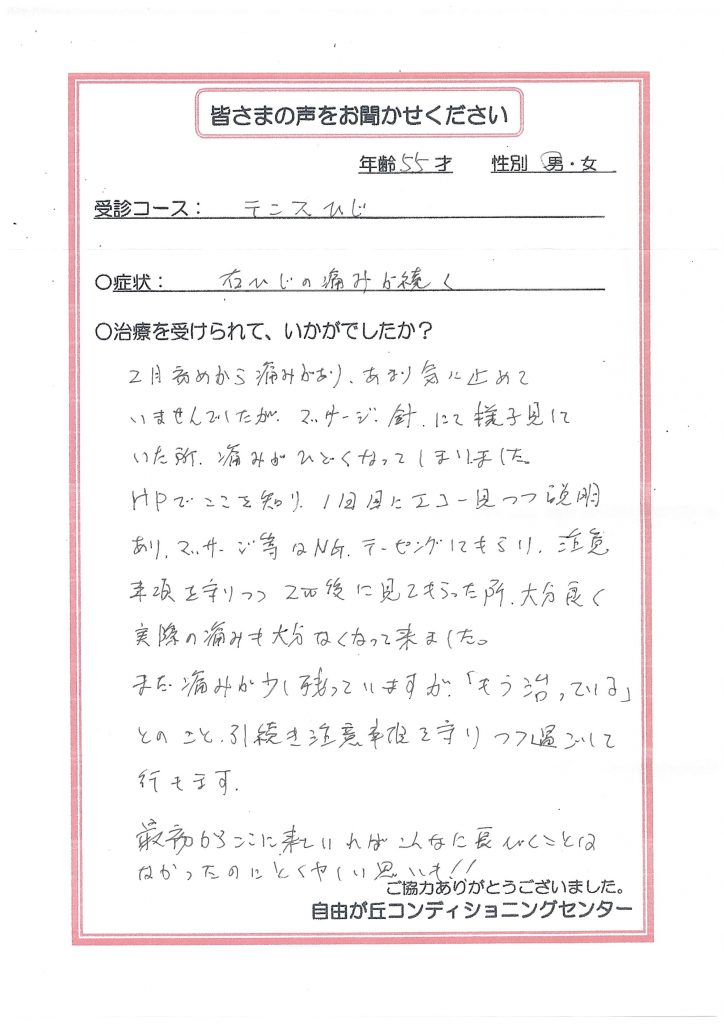 皆さまの声をお聞かせください
年齢 55 才 性別 男・女
受診コース： テニスひじ
〇症状： 右ひじの痛みが続く
〇治療を受けられて、いかがでしたか？
2月初めから痛みがあり、あまり気に止めて
いませんでしたが、マッサージ、針、にて様子見て
いた所、痛みがひどくなってしまいました。
HPでここを知り、1回目にエコー見つつ説明
あり、マッサージ等はNG、テーピングしてもらい、注意
事項を守りつつ 2W後に見てもらった所、大分良く
実際の痛みも大分なくなって来ました。
まだ痛みが少し残っていますが、「もう治っている」
とのこと、引続き注意事項を守りつつ過ごして
行きます。
最初からここに来ていればこんなに長びくことは
なかったのにとくやしい思いも!!
ご協力ありがとうございました。
自由が丘コンディショニングセンター